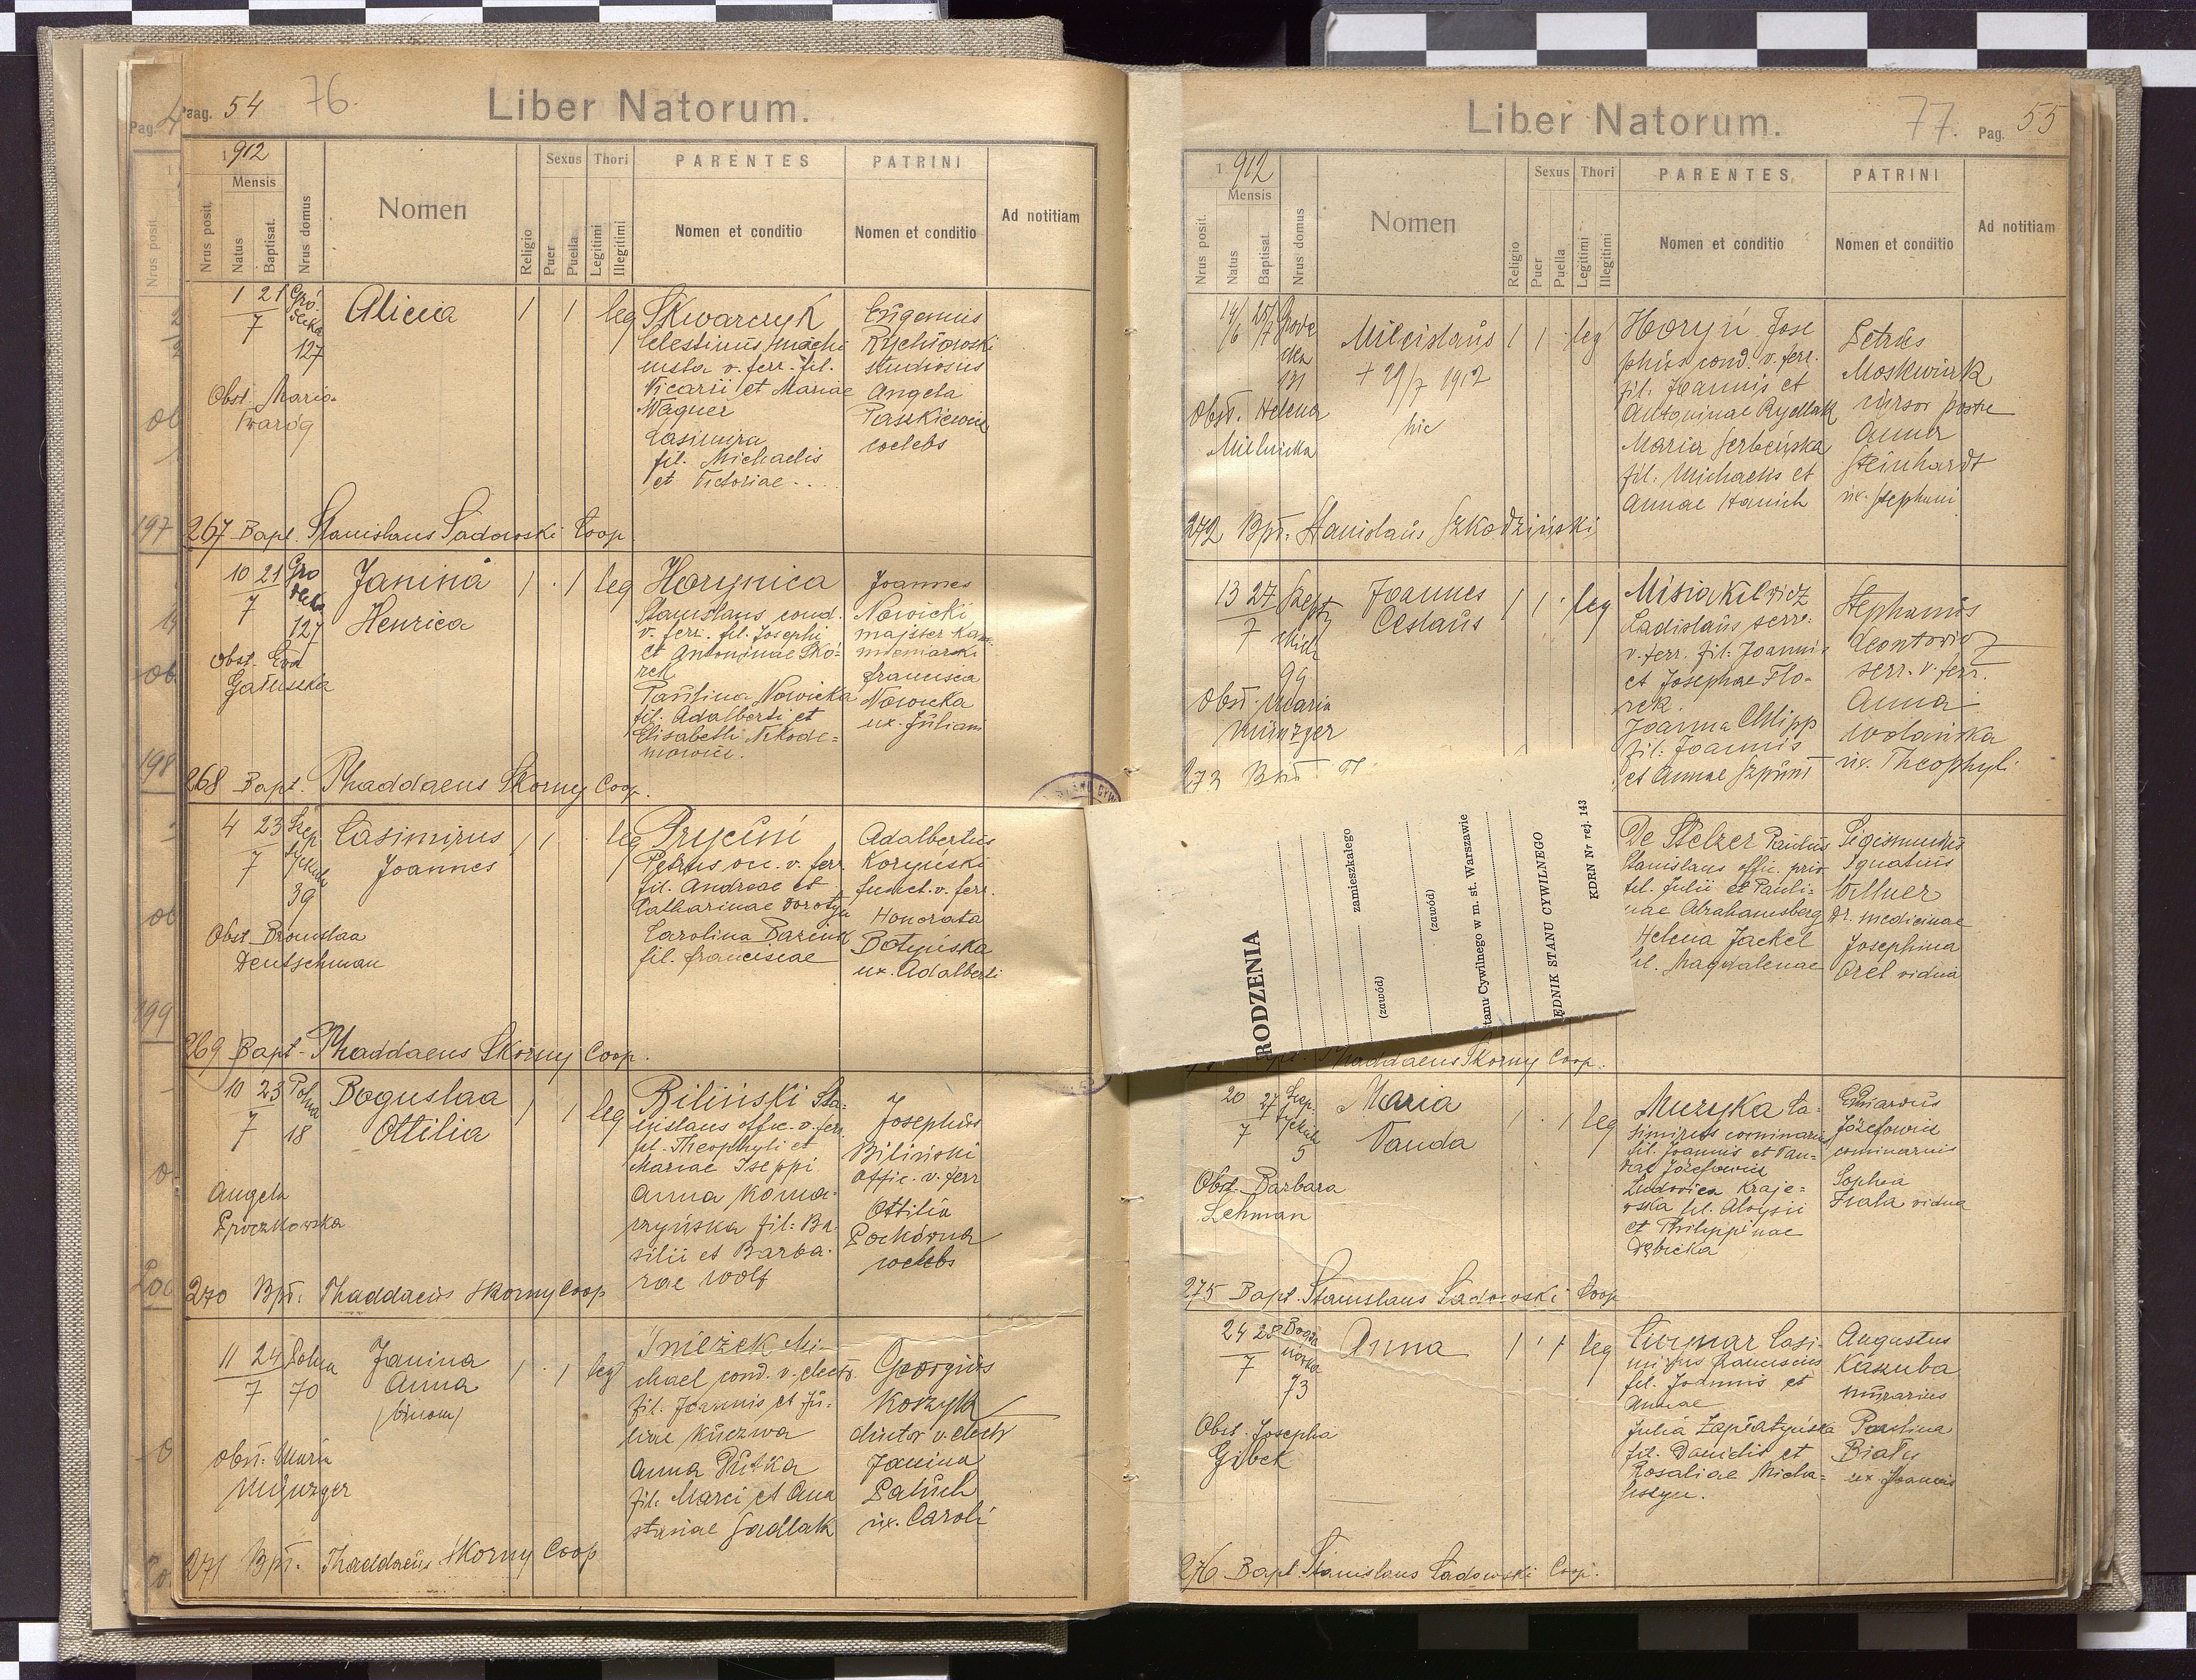 Pag. 54
76.
Liber Natorum.
1912
Mensis
Nrus posit.
Natus
Baptisat.
Nrus domus
Nomen
Religio
Sexus
Puer
Puella
Thori
Legitimi
Illegitimi
PARENTES
Nomen et conditio
PATRINI
Nomen et conditio
Ad notitiam
1 21
7
127
Alicia
1 1 leg
Skwarczyk
Celestinus machi
nista v. ferr. fil.
Vicarii et Mariae
Wagner
Casimira
fil. Michaelis
et Victoriae
Eugenius
Rychłowski
studiosus
Angela
Paszkiewicz
coelebs
Obst. Maria
Twaróg
267 Bapt. Stanislaus Sadowski Coop
10 21
7
127
Janina
Henrica
1 1 leg
Horynica
Stanislaus cond.
v. ferr. fil. Josephi
et Antoninae Sko
rek
Paulina Nowicka
fil. Adalberti et
Elisabeth Nikode=
mowicz.
Joannes
Nowicki
majster kam
mieniarski
Francisca
Nowicka
ux. Juliani
Obst. Eva
Gałuszka
268 Bapt. Thaddaeus Skorny Coop.
4 23
7
39
Casimirus
Joannes
1 1 leg
Petrus occ. v. ferr.
fil. Andreae et
Catharinae Dorotya
Carolina
fil. Franciscae
Adalbertus
Koryński
funct. v. ferr.
Honorata
Botyńska
ux. Adalberti
Obst. Bronislaa
Deutschman
269 Bapt. Thaddaeus Skorny Coop.
10 23 Polna
7 18
Boguslaa
Ottilia
1 1 leg
Biliński Sta=
nislaus offic. v. ferr
fil. Theophyli et
Mariae Iseppi
Anna Koma-
rzyńska fil: Ba
silii et Barba-
rae Wolf
Josephus
Biliński
offic. v. ferr
Ottilia
Pochówna
coelebs
Angela
270 Bpt. Thaddaeus Skorny Coop
11 24 Polna
7 70
Janina
Anna
(binom)
1 1 leg
Śnieżek Mi-
chael cond. v. electr.
fil. Joannis et Ju-
liae Kuczwa
Anna Dutka
fil. Marci et Ana
stasiae Sadlak
Georgius
Koszyk
ductor v. electr
Janina
Paluch
ux. Caroli
Obst: Maria
Münzger
271 Bpt. Thaddaeus Skorny Coop
Liber Natorum.
77.
Pag. 55
1912
Mensis
Nrus posit.
Natus
Baptisat.
Nrus domus
Nomen
Religio
Sexus
Puer
Puella
Thori
Legitimi
Illegitimi
PARENTES
Nomen et conditio
PATRINI
Nomen et conditio
Ad notitiam
14/6 25/7
131
Milcislaus
+ 29/7 1912
hic
1 1 leg
Horyń Jose
phus cond. v. ferr.
fil. Joannis et
Antoninae Rydlak
Maria Serbeńska
fil. Michaelis et
Annae Hanich
Petrus
Moskwiak
cursor postae
Anna
Steinhardt
ux. Stephani
Obst. Helena
Mielnicka
272 Bpt. Stanislaus Szkodziński
13 27
7
99
Joannes
Ceslaus
1 1 leg
Misiakiewicz
Ladislaus serr.
v. ferr. fil. Joannis
et Josephae Flo-
rek.
Joanna Chlipp
fil. Joannis
et Annae Szpunt
Stephanus
Leontowicz
serr. v. ferr.
Anna
Wolańska
ux. Theophyli
Obst. Maria
Münzger
273 Bpt
RODZENIA
zamieszkałego
(zawód)
(zawód)
tanu Cywilnego w m. st. Warszawie
ĘDNIK STANU CYWILNEGO
KDRN Nr rej. 143
De Stelzer Paulus
Stanislaus offic. priv
fil. Julii et Pauli-
nae Abrahamsberg
Helena Jaekel
fil. Magdalenae
Sigismundus
Ignatius
Willner
Dr. medicinae
Josephina
Orel vidua
Thaddaeus Skorny Coop.
20 27
7
5
Maria
Vanda
1 1 leg
Muzyka Ca-
simirus cominarius
fil. Joannis et Van-
dae Józefowicz
Ludovica Kraje=
wska fil. Aloysii
et Philippinae
Dębicka
Eduardus
Józefowicz
cominarius
Sophia
Frala vidua
Obst. Barbara
Lehman
275 Bapt. Stanislaus Sadowski Coop
24 28
7
73
Anna
1 1 leg
Casi-
mirus
fil. Joannis et
Annae
Julia Zapłatyńska
fil. Danielis et
Rosaliae Micha=
liszyn.
Augustus
Kaszuba
murarius
Paulina
Biały
ux. Joannis
Obst. Josepha
Gibek
276 Bapt. Stanislaus Sadowski Coop.
197
198
199
200